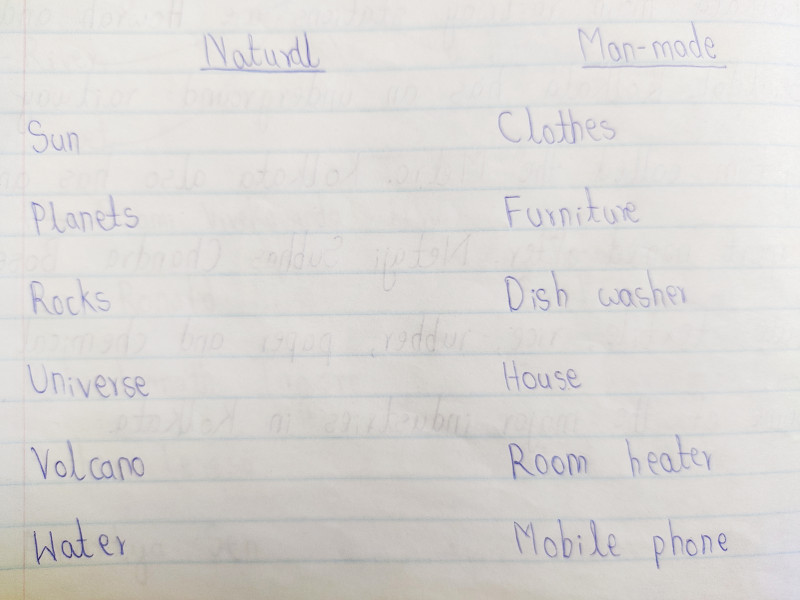 Natural Man-made
Sun Clothes
Planets Furniture
Rocks Dish washer
Universe House
Volcano Room heater
Water Mobile phone